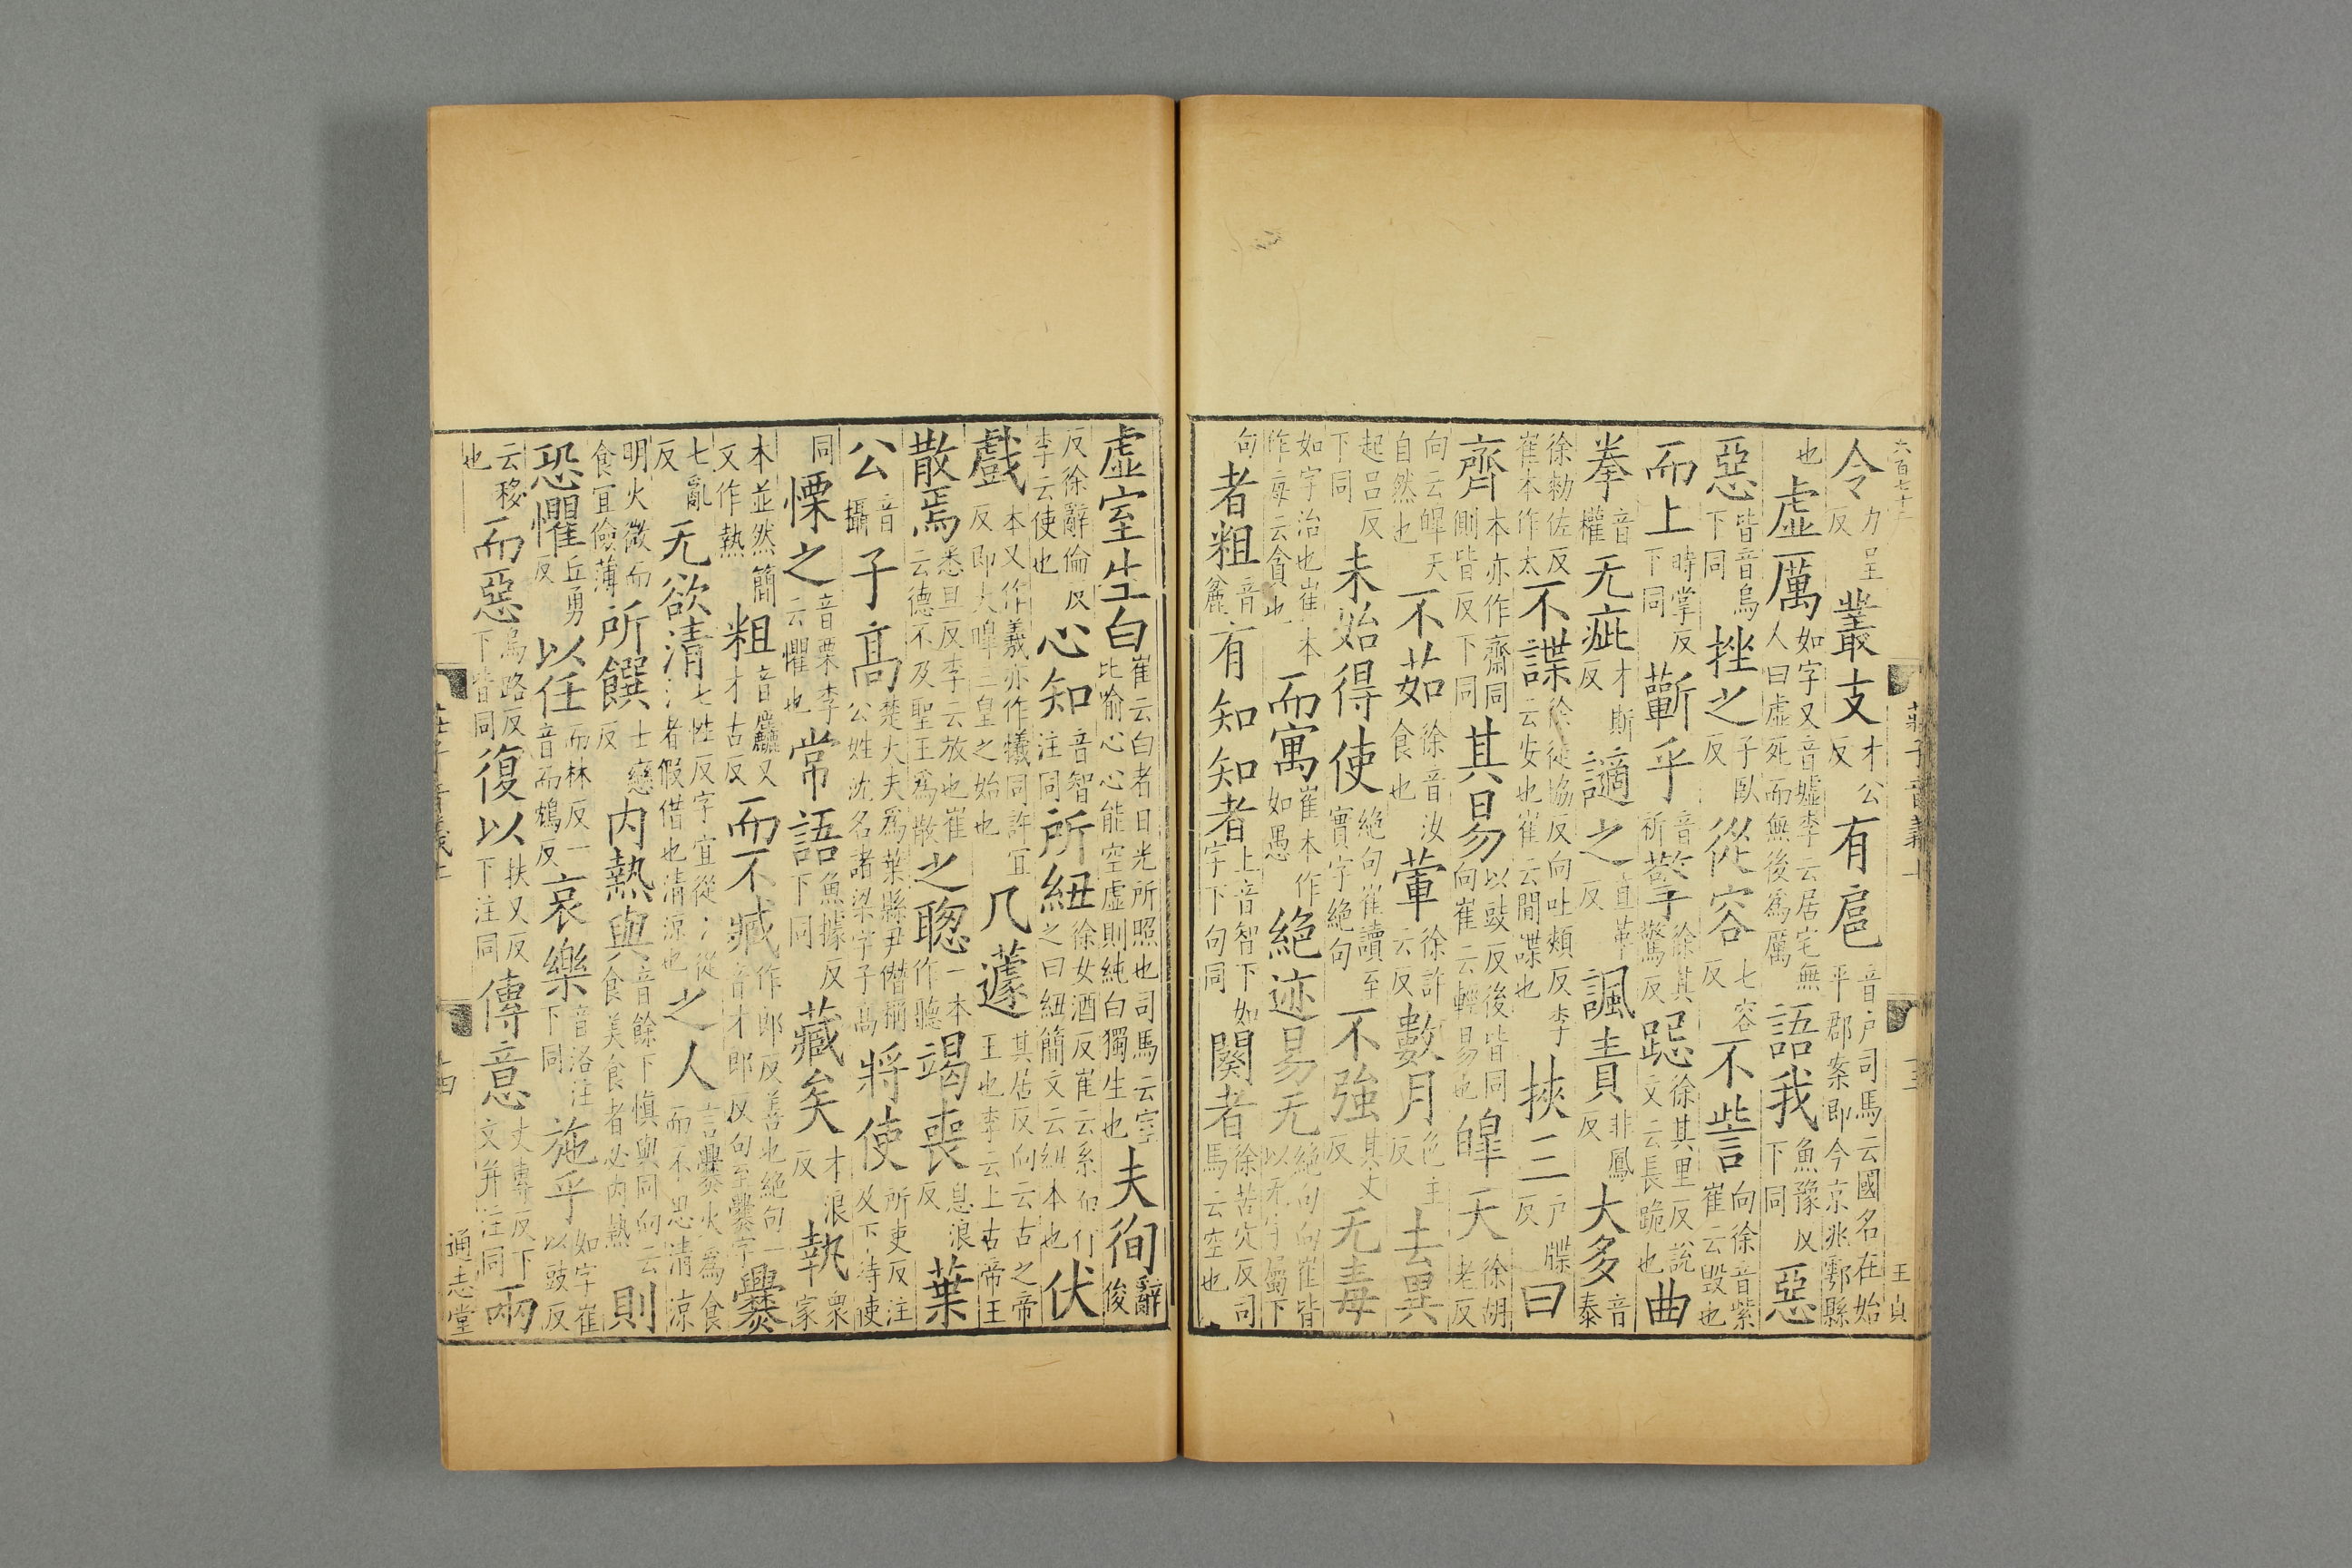 六百七十二
莊子音義上 十三 王貞
令力呈反叢支才公反有扈音戶司馬云國名在始平郡案即今京兆鄠縣
也虛厲如字又音墟李云居宅無人曰虛死而無後爲厲語我魚豫反下同惡
惡皆音烏下同挫之子臥反從容七容反不訾向徐音紫崔云毀也
而上時掌反下同蘄乎音祈擎徐其驚反跽徐其里反說文云長跪也曲
拳音權无疵才斯反讁之直革反諷責非鳳反大多音泰
徐勑佐反崔本作太不諜徐徒協反向吐頰反李云安也崔云閒諜也挾三戶牒反曰
齊本亦作齋同側皆反下同其易以豉反後皆同向崔云輕易也皡天徐胡老反
向云皡天自然也不茹徐音汝食也葷徐許云反數月色主反去異
起呂反下同未始得使絕句崔讀至實字絕句不強其丈反无毒
如字治也崔本作每云貪也而寓崔本作如愚絕迹易无絕句向崔皆以无字屬下
句者粗音麄有知知者上音智下如字下句同闋者徐苦穴反司馬云空也
虛室生白崔云白者日光所照也司馬云室比喻心心能空虛則純白獨生也夫徇辭俊
反徐辭倫反李云使也心知音智注同所紐徐女酒反崔云系而行之曰紐簡文云紐本也伏
戲本又作羲亦作犧同許宜反即大皡三皇之始也几蘧其居反向云古之帝王也李云上古帝王
散焉悉旦反李云放也崔云德不及聖王爲散之聦一本作聽竭喪息浪反葉
公音攝子高楚大夫爲葉縣尹僭稱公姓沈名諸梁字子高將使所吏反注及下待使
同慄之音栗李云懼也常語魚據反下同藏矣才浪反執衆家
本並然簡文作熱粗音麤又才古反而不臧作郎反善也絕句一音才郎反句至爨字爨
七亂反无欲清七性反字宜從冫從氵者假借也清涼也之人言爨火爲食而不思清涼
明火微而食宜儉薄所饌士戀反內熱與音餘下慎與同向云食美食者必內熱則
恐懼丘勇反以任而林反一音而鴆反哀樂音洛注下同施乎如字崔以豉反
云移也而惡烏路反下皆同復以扶又反下注同傳意丈專反下文并注同兩
莊子音義上 十四 通志堂